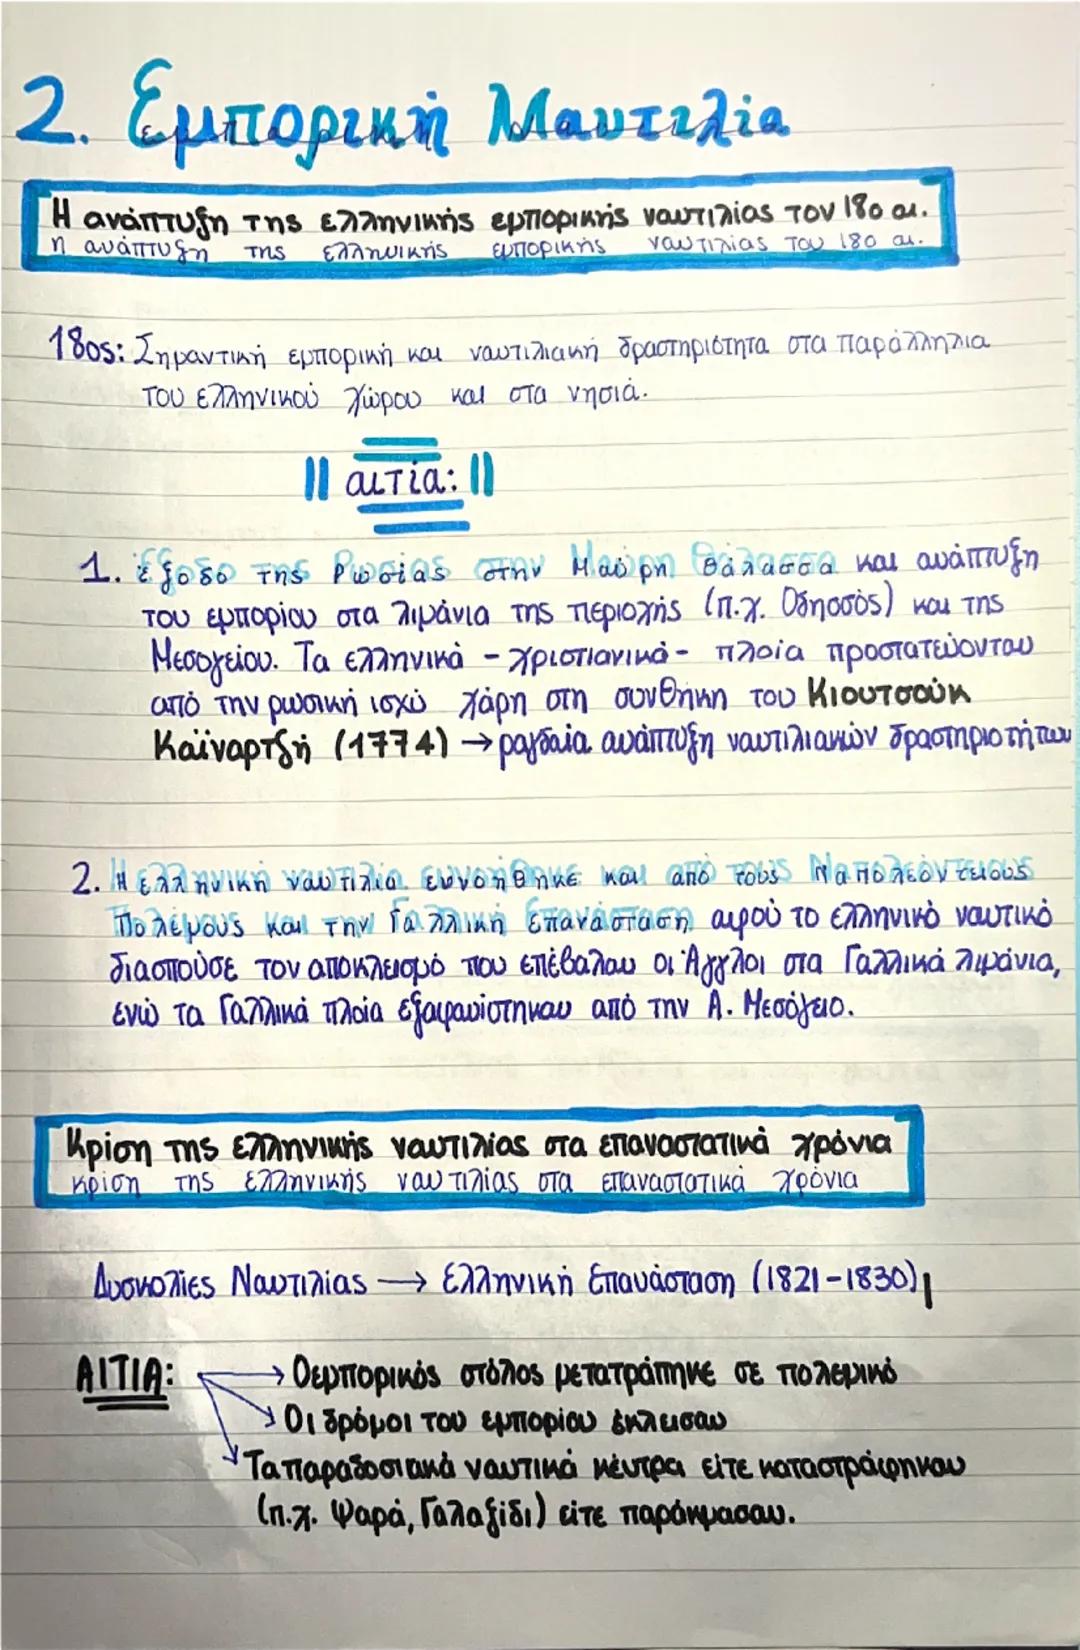 2. Εμπορική Ναυτιλία
Η ανάπτυξη της ελληνικής εμπορικής ναυτιλίας τον 18ο αι.
η ανάπτυξη της ελληνικής εμπορικής ναυτιλίας τον 18ο αι.
18ος: Σημαντική εμπορική και ναυτιλιακή δραστηριότητα στα παράλληλια
του ελληνικού χώρου και στα νησιά.
|| αιτία: ||
1. Έξοδο της Ρωσίας στην Μαύρη Θάλασσα και ανάπτυξη
του εμπορίου στα λιμάνια της περιοχής (π.χ. Οδησσός) και της
Μεσογείου. Τα ελληνικά - χριστιανικά - πλοία προστατεύονταν
από την ρωσική ισχύ χάρη στη συνθήκη του Κιουτσούκ
Καϊναρτζή (1774) → ραγδαία ανάπτυξη ναυτιλιακών δραστηριοτήτων
2. Η ελληνική ναυτιλία ευνοήθηκε και από τους Ναπολεόντειους
Πολέμους και την Γαλλική Επανάσταση αφού το ελληνικό ναυτικό
διασπούσε τον αποκλεισμό που επέβαλαν οι Άγγλοι στα Γαλλικά λιμάνια,
ενώ τα Γαλλικά πλοία εξαφανίστηκαν από την Α. Μεσόγειο.
Κρίση της ελληνικής ναυτιλίας στα επαναστατικά χρόνια
κρίση της ελληνικής ναυτιλίας στα επαναστατικά χρόνια
Δυσκολίες Ναυτιλίας → Ελληνική Επανάσταση (1821-1830)
ΑΙΤΙΑ: → Ο εμπορικός στόλος μετατράπηκε σε πολεμικό
→ Οι δρόμοι του εμπορίου έκλεισαν
→ Τα παραδοσιακά ναυτικά κέντρα είτε καταστράφηκαν
(π.χ. Ψαρά, Γαλαξίδι) είτε παράκμασαν.